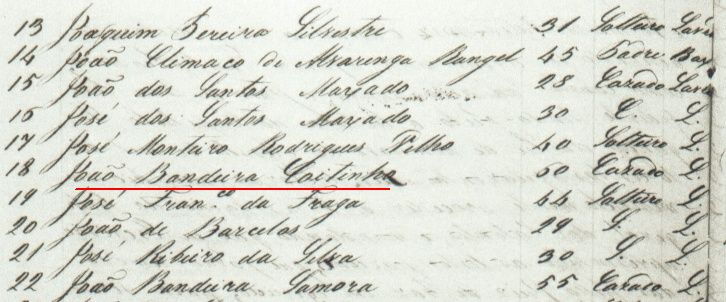 13 Joaquim Pereira Silvestre 31 Solteiro Lavr
14 João Climaco de Alvarenga Rangel 45 Padre
15 João dos Santos Macjado 28 Cazado Lavr
16 José dos Santos Macjado 30 C. L.
17 José Monteiro Rodrigues Velho 40 Solteiro L.
18 João Bandeira Coitinho 50 Cazado L.
19 José Fran.co da Fraga 44 Solteiro L.
20 João de Barcelos 29 S. L.
21 José Ribeiro da Silva 30 S. L.
22 João Bandeira Samora 55 Cazado L.